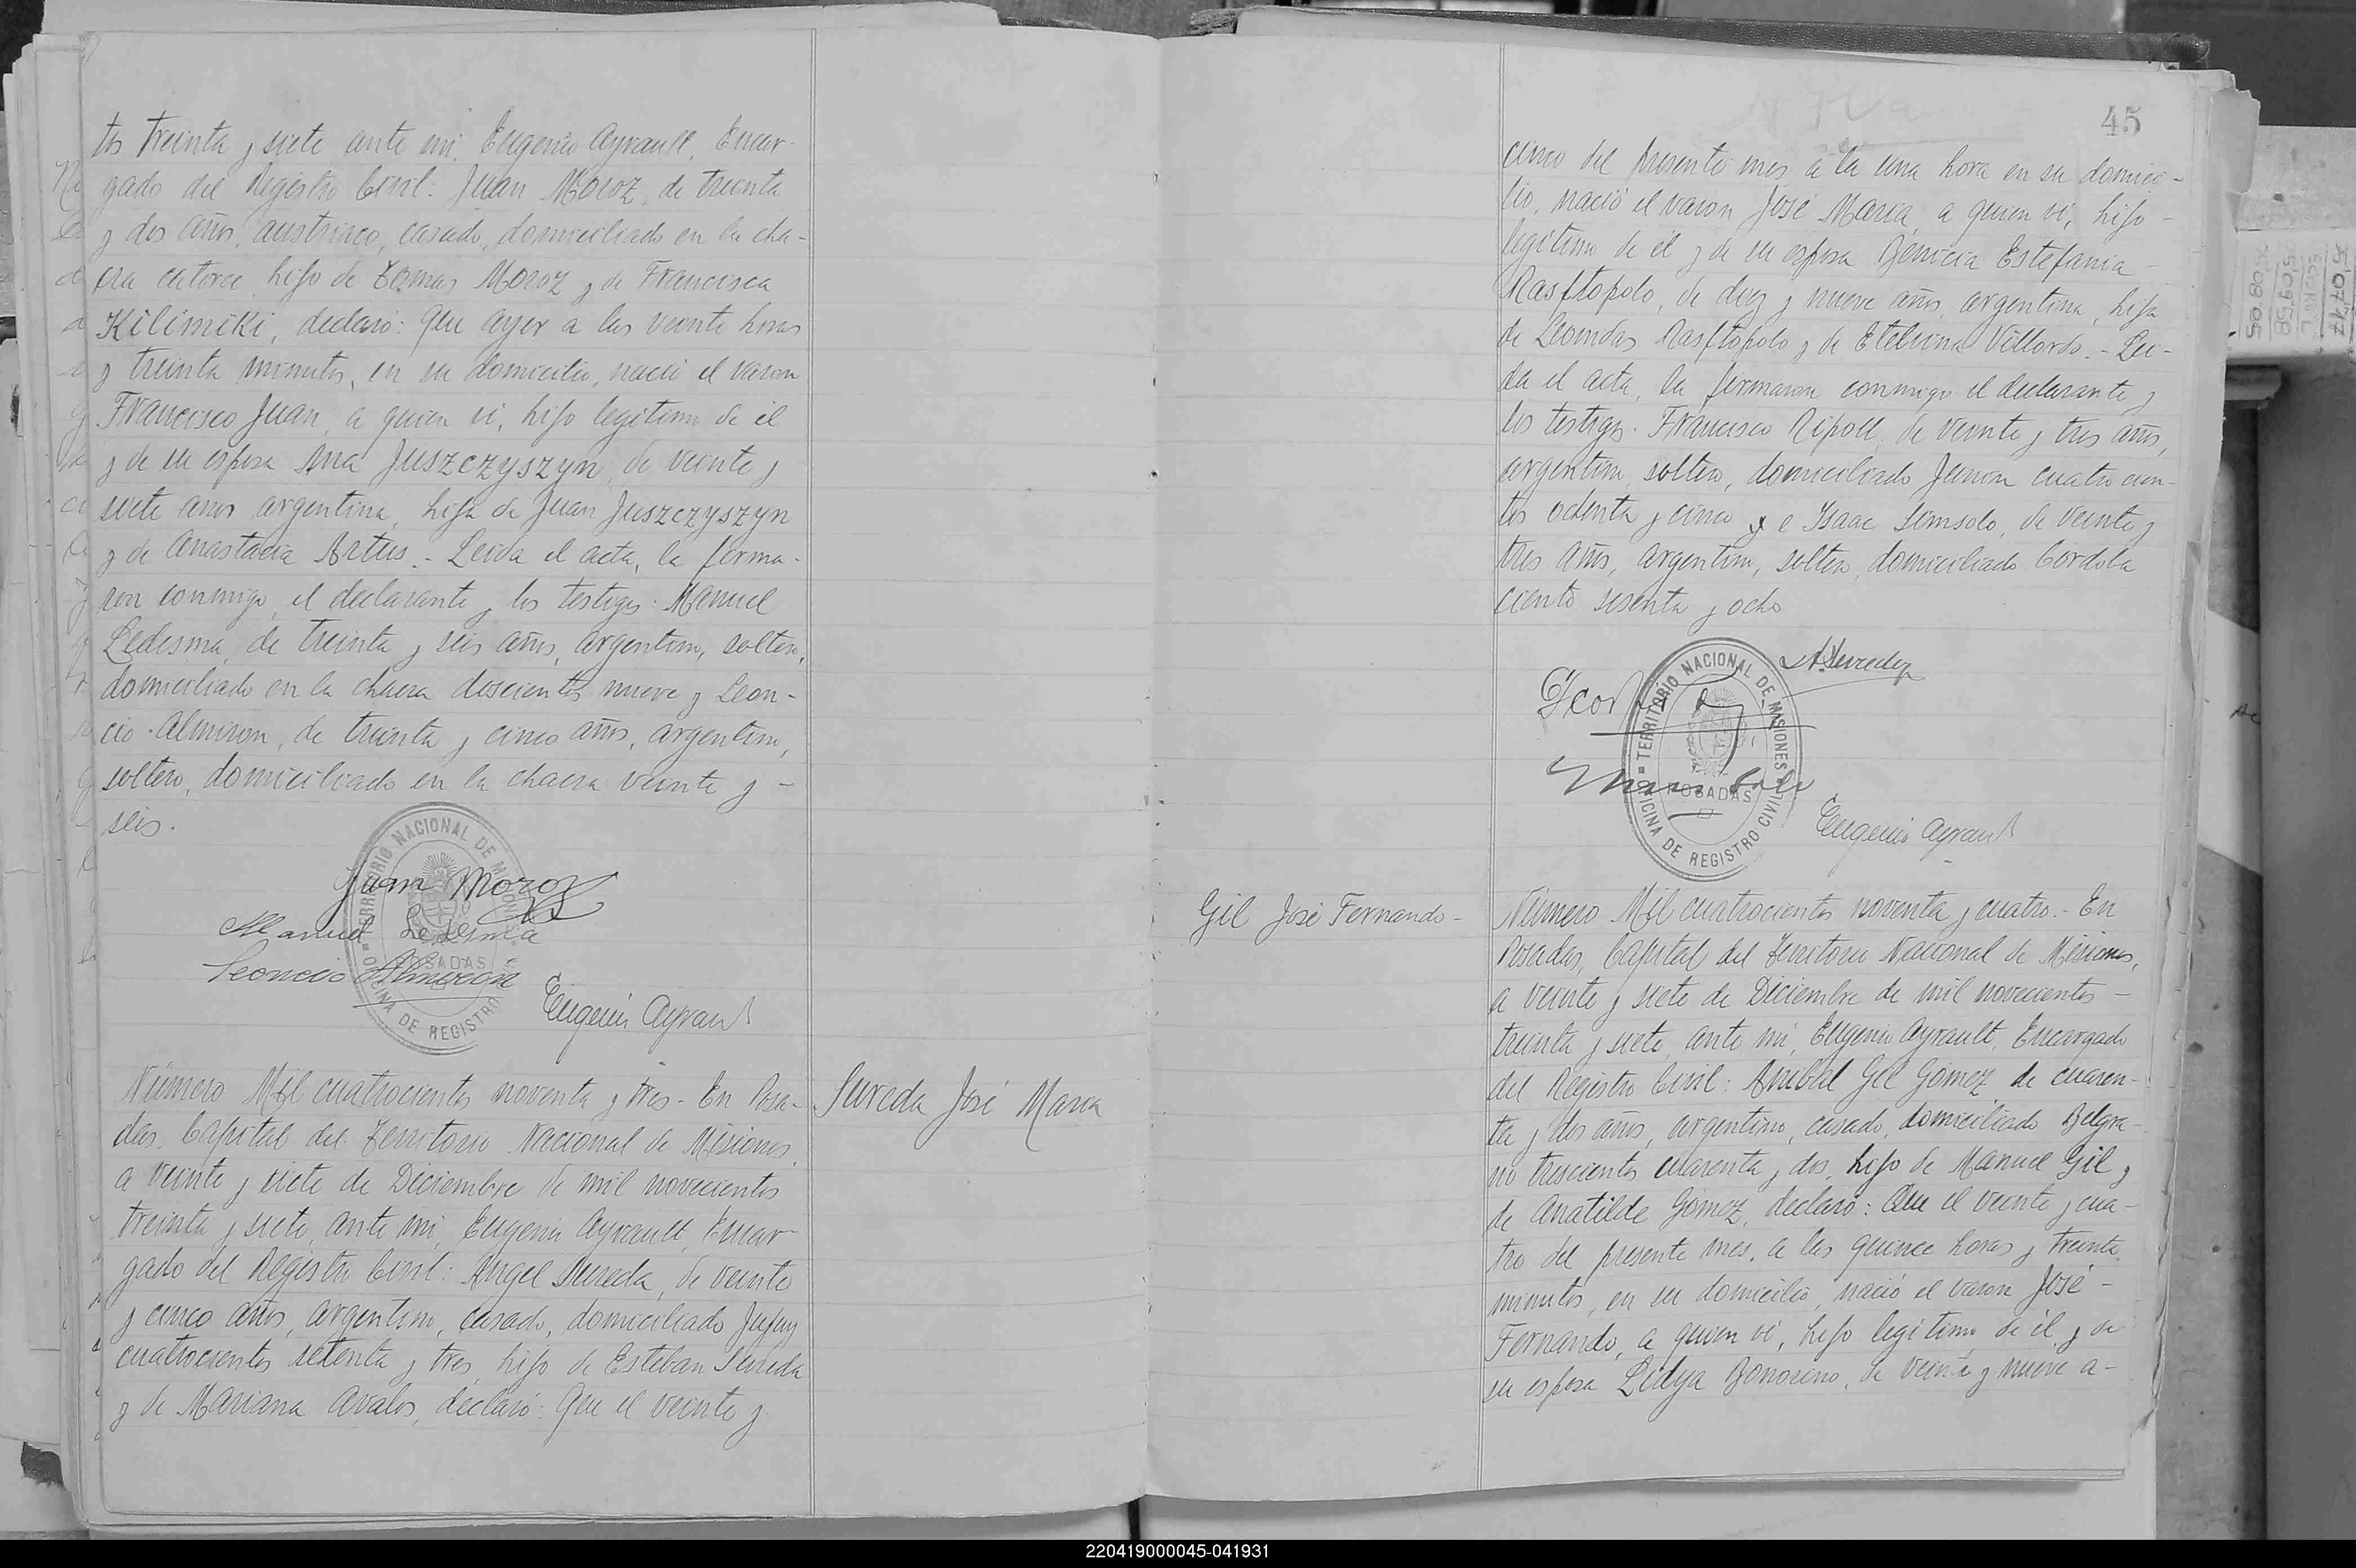 tos treinta y siete ante mi, Eugenio Ayrault, Encar-
gado del Registro Civil: Juan Moroz, de treinta
y dos años, austriaco, casado, domiciliado en la cha-
cra catorce, hijo de Tomas Moroz y de Francisca
Kilimiki, declaró: Que ayer a las veinte horas
y treinta minutos, en su domicilio, nació el varon
Francisco Juan, a quien vi, hijo legitimo de él
y de su esposa Ana Juszczyszyn, de veinte y
siete años argentina, hija de Juan Juszczyszyn
y de Anastacia Artus.- Leida el acta, la firma-
ron conmigo, el declarante y los testigos: Manuel
Ledesma, de treinta y seis años, argentino, soltero,
domiciliado en la chacra doscientos nueve y Leon-
cio Almiron, de treinta y cinco años, argentino,
soltero, domiciliado en la chacra veinte y -
seis.
TERRITORIO NACIONAL DE MISIONES
POSADAS
OFICINA DE REGISTRO
Juan Moroz
Manuel Ledesma
Leoncio Almirón
Eugenio Ayrault
Número Mil cuatrocientos noventa y tres - En Posa-
das, Capital del Territorio Nacional de Misiones,
a veinte y siete de Diciembre de mil novecientos
treinta y siete, ante mi, Eugenio Ayrault, Encar-
gado del Registro Civil: Angel Sureda, de veinte
y cinco años, argentino, casado, domiciliado Jujuy
cuatrocientos setenta y tres, hijo de Esteban Sureda
y de Mariana Avalos, declaró: Que el veinte y
Sureda José Maria
45
cinco del presente mes a la una hora en su domici-
lio, nació el varon José Maria, a quien vi, hijo -
legitimo de él y de su esposa Benicia Estefania -
Rasftopolo, de diez y nueve años, argentina, hija
de Leonidas Rasftopolo y de Etelvina Villordo.- Lei-
da el acta, la firmaron conmigo el declarante y
los testigos: Francisco Ripoll, de veinte y tres años,
argentino, soltero, domiciliado Junin cuatrocien-
tos ochenta y cinco e Isaac Simsolo, de veinte y
tres años, argentino, soltero, domiciliado Cordoba
ciento sesenta y ocho
TERRITORIO NACIONAL DE MISIONES
POSADAS
OFICINA DE REGISTRO CIVIL
Eugenio Ayrault
Gil José Fernando -
Número Mil cuatrocientos noventa y cuatro.- En
Posadas, Capital del Territorio Nacional de Misiones,
a veinte y siete de Diciembre de mil novecientos -
treinta y siete, ante mi, Eugenio Ayrault, Encargado
del Registro Civil: Anibal Gil Gómez de cuaren-
ta y dos años, argentino, casado, domiciliado Belgra-
no trescientos cuarenta y dos, hijo de Manuel Gil y
de Anatilde Gómez, declaró: Que el veinte y cua-
tro del presente mes, a las quince horas y treinta
minutos, en su domicilio, nació el varon José -
Fernando, a quien vi, hijo legitimo de él y de
su esposa Lidya Bonorino, de veinte y nueve a-
507-17
509-58
509-95
220419000045-041931